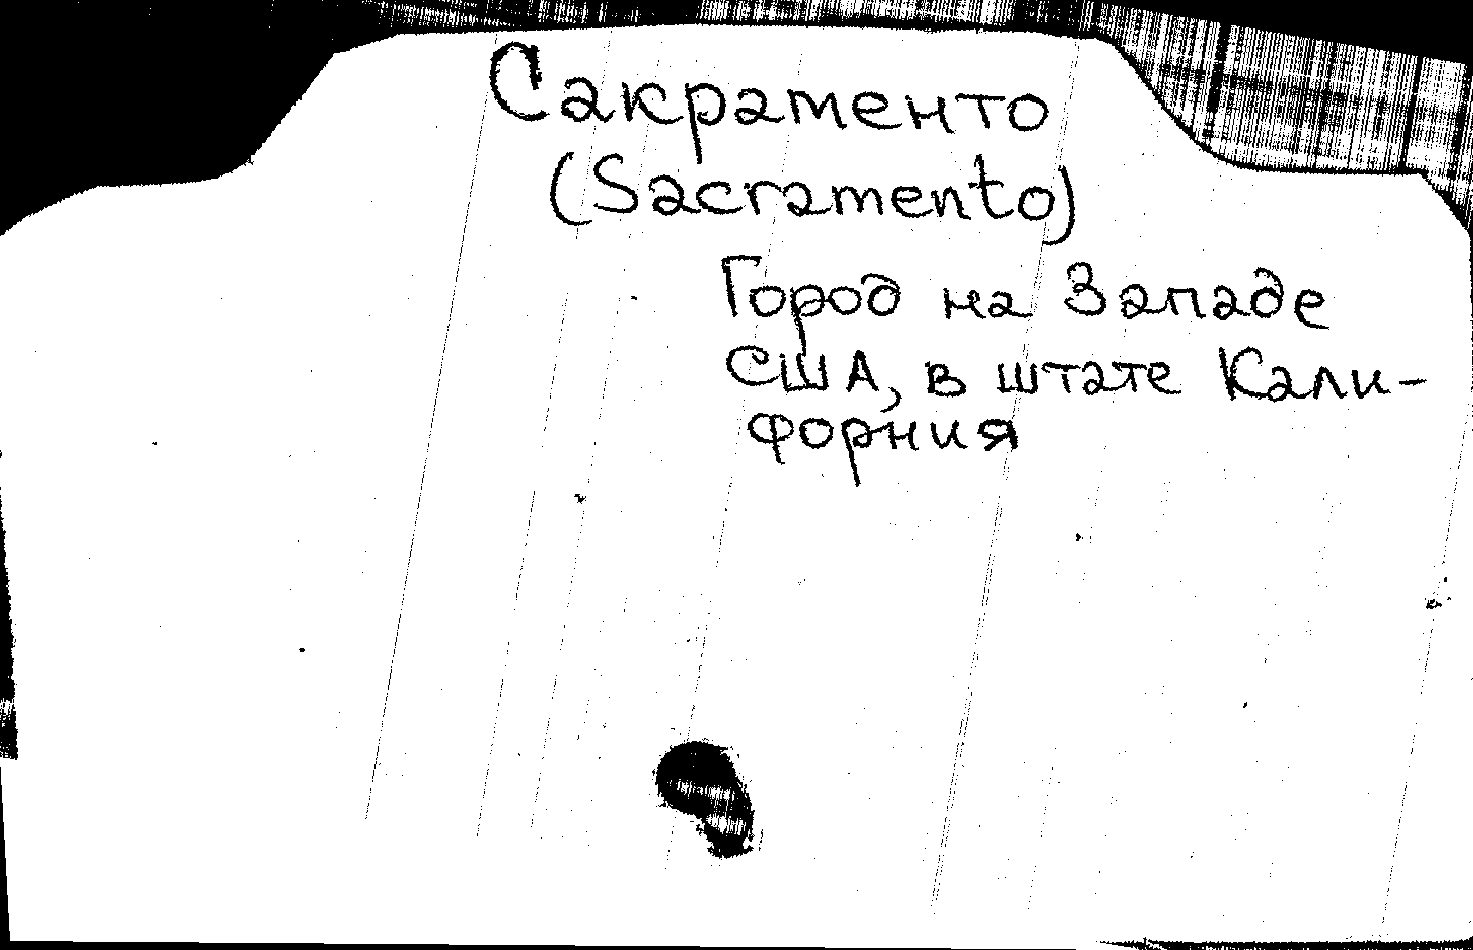 Сакраменто
(Sacramento)
Город на Западе
США, в штате Кали-
форния